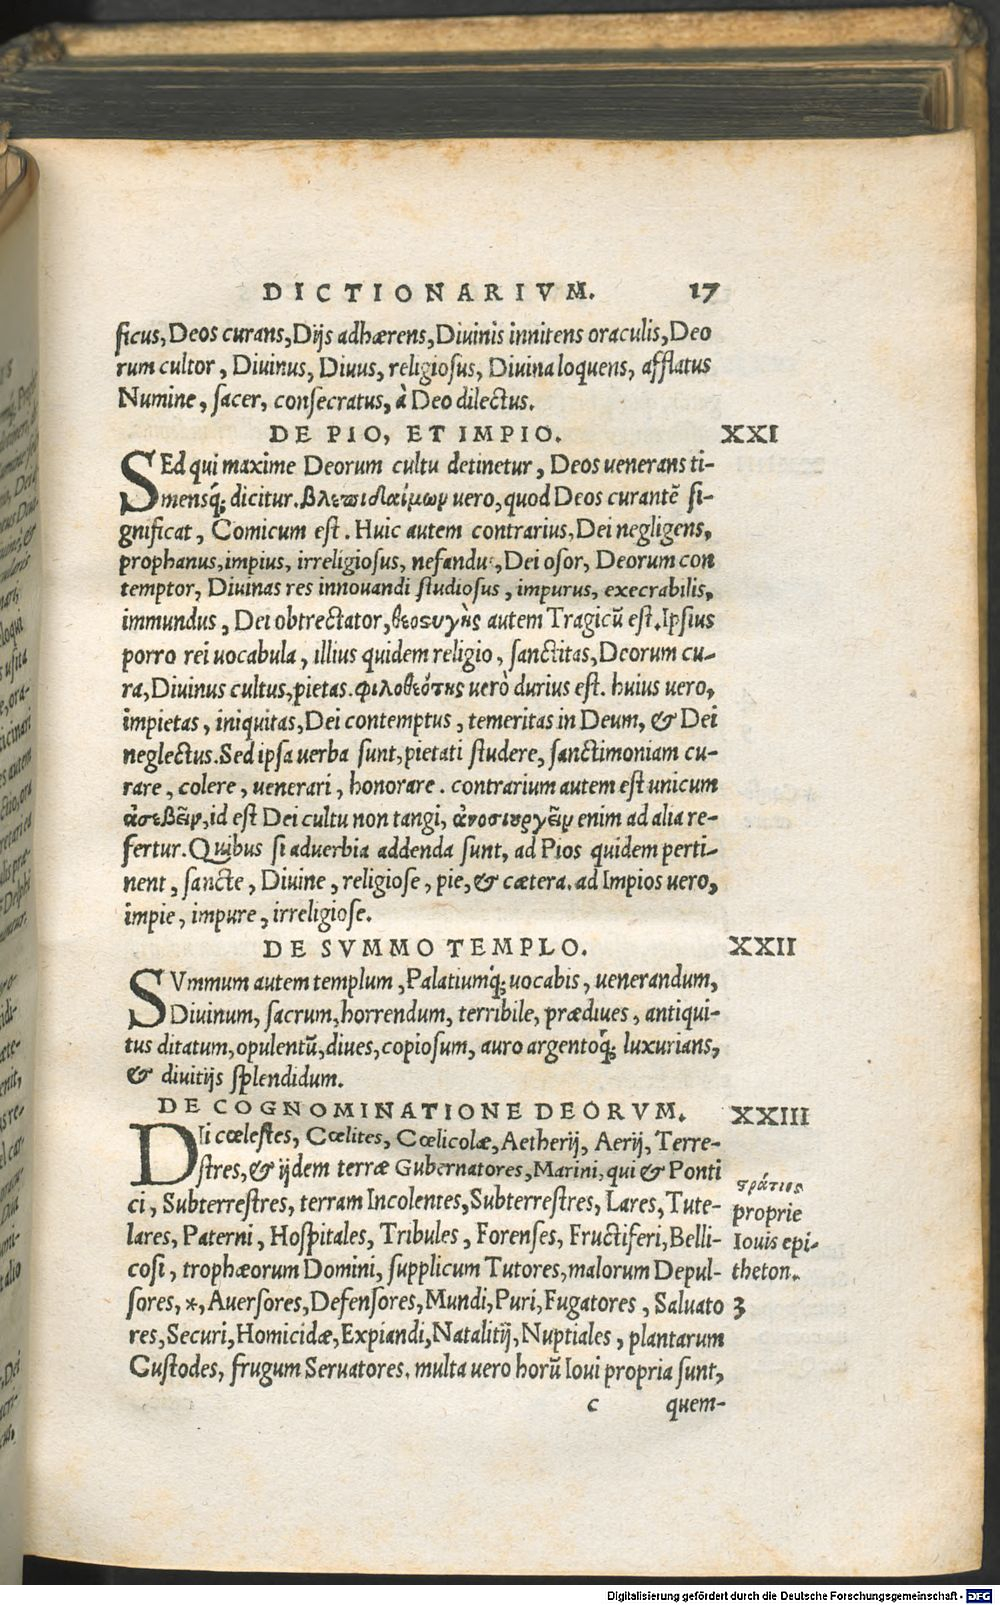 DICTIONARIVM. 17
ficus, Deos curans, Dijs adhærens, Diuinis innitens oraculis, Deo
rum cultor, Diuinus, Diuus, religiosus, Diuina loquens, afflatus
Numine, sacer, consecratus, à Deo dilectus.
DE PIO, ET IMPIO. XXI
SEd qui maxime Deorum cultu detinetur, Deos uenerans ti-
mensq́; dicitur. βλεπιδαίμωρ uero, quod Deos curantẽ si-
gnificat, Comicum est. Huic autem contrarius, Dei negligens,
prophanus, impius, irreligiosus, nefandus, Dei osor, Deorum con
temptor, Diuinas res innouandi studiosus, impurus, execrabilis,
immundus, Dei obtrectator, θεοσυγὴς autem Tragicũ est. Ipsius
porro rei uocabula, illius quidem religio, sanctitas, Deorum cu-
ra, Diuinus cultus, pietas. φιλοθεότης uerò durius est. huius uero,
impietas, iniquitas, Dei contemptus, temeritas in Deum, & Dei
neglectus. Sed ipsa uerba sunt, pietati studere, sanctimoniam cu-
rare, colere, uenerari, honorare. contrarium autem est unicum
ἀσεβεῖν, id est Dei cultu non tangi, ἀνοσιουργεῖν enim ad alia re-
fertur. Quibus si aduerbia addenda sunt, ad Pios quidem perti-
nent, sancte, Diuine, religiose, pie, & cætera. ad Impios uero,
impie, impure, irreligiose.
DE SVMMO TEMPLO. XXII
SVmmum autem templum, Palatiumq́; uocabis, uenerandum,
Diuinum, sacrum, horrendum, terribile, prædiues, antiqui-
tus ditatum, opulentũ, diues, copiosum, auro argentoq́; luxurians,
& diuitijs splendidum.
DE COGNOMINATIONE DEORVM. XXIII
DIi cœlestes, Cœlites, Cœlicolæ, Aetherij, Aerij, Terre-
stres, & ijdem terræ Gubernatores, Marini, qui & Ponti
ci, Subterrestres, terram Incolentes, Subterrestres, Lares, Tute-
lares, Paterni, Hospitales, Tribules, Forenses, Fructiferi, Belli-
cosi, trophæorum Domini, supplicum Tutores, malorum Depul-
sores, *, Auersores, Defensores, Mundi, Puri, Fugatores, Saluato
res, Securi, Homicidæ, Expiandi, Natalitij, Nuptiales, plantarum
Custodes, frugum Seruatores. multa uero horũ Ioui propria sunt,
c quem-
σράτιος
proprie
Iouis epi-
theton.
3
Digitalisierung gefördert durch die Deutsche Forschungsgemeinschaft - DFG